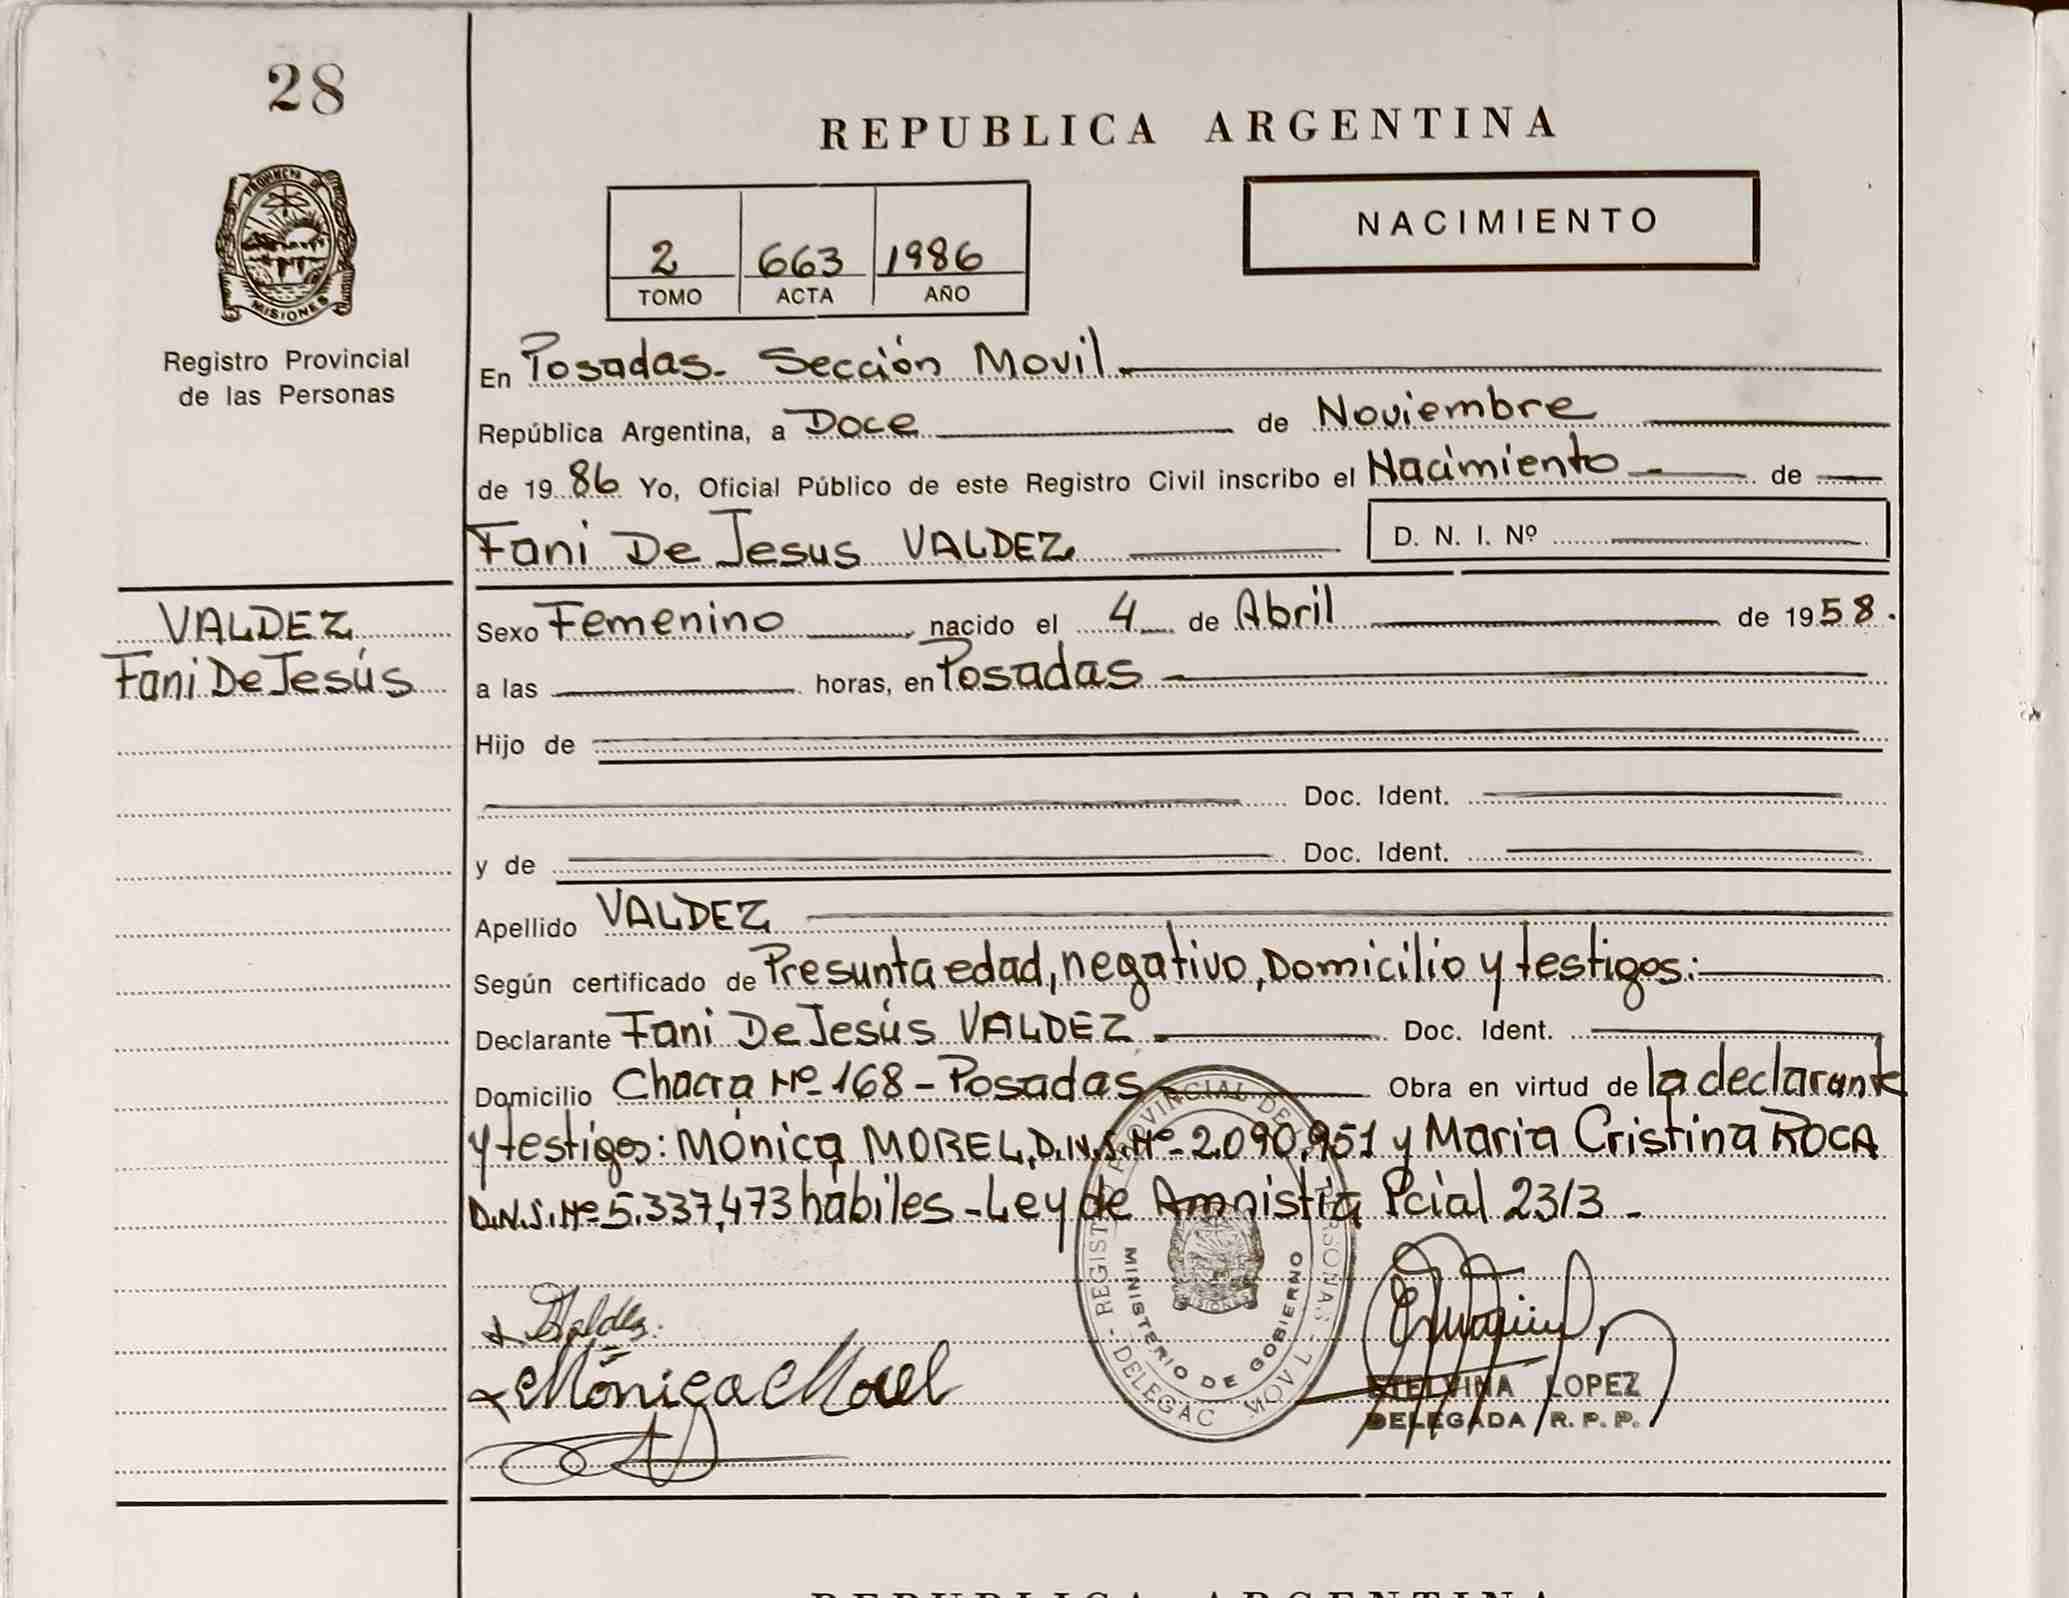 28
REPUBLICA ARGENTINA
NACIMIENTO
2 663 1986
TOMO ACTA AÑO
PROVINCIA DE MISIONES
Registro Provincial
de las Personas
En Posadas- Sección Movil
República Argentina, a Doce de Noviembre
de 1986 Yo, Oficial Público de este Registro Civil inscribo el Nacimiento de
Fani De Jesus VALDEZ D. N. I. Nº
VALDEZ
Fani De Jesús
Sexo Femenino nacido el 4 de Abril de 1958.
a las horas, en Posadas
Hijo de
Doc. Ident.
y de Doc. Ident.
Apellido VALDEZ
Según certificado de Presunta edad, negativo, Domicilio y testigos:
Declarante Fani De Jesús VALDEZ Doc. Ident.
Domicilio Chacra Nº 168 - Posadas Obra en virtud de la declarante
y testigos: Mónica MOREL, D.N.I. Nº 2.090,951 y Maria Cristina ROCA
D.N.I. Nº 5.337,473 hábiles - Ley de Amnistia Pcial 23/3 -
REGISTRO PROVINCIAL DE PERSONAS - DELEGAC MOVIL
MINISTERIO DE GOBIERNO
MISIONES
Valdez
Mónica Morel
ETELVINA LOPEZ
DELEGADA R. P. P.
REPUBLICA ARGENTINA